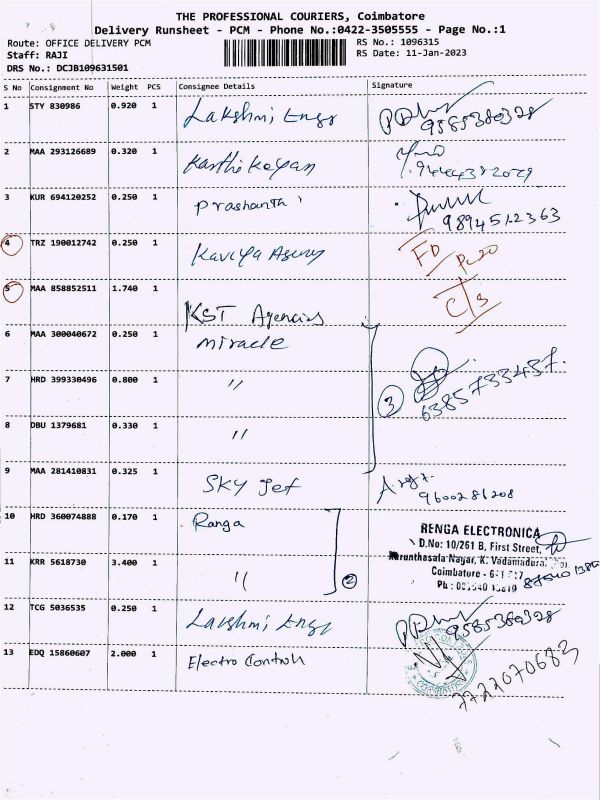 THE PROFESSIONAL COURIERS, Coimbatore
Delivery Runsheet - PCM - Phone No.:0422-3505555 - Page No.:1
Route: OFFICE DELIVERY PCM
Staff: RAJI
DRS No.: DCJB109631501
RS No.: 1096315
RS Date: 11-Jan-2023
S No Consignment No Weight PCS Consignee Details Signature
1 STY 830986 0.920 1 Lakshmi Engs 9585380328
2 MAA 293126689 0.320 1 Karthikeyan
3 KUR 694120252 0.250 1 Prashanth 9894512363
4 TRZ 190012742 0.250 1 Kaviya FD
5 MAA 858852511 1.740 1 KST Agencies C/s
6 MAA 300040672 0.250 1 Miracle
7 HRD 399330496 0.800 1 " 3 6385733437.
8 DBU 1379681 0.330 1 "
9 MAA 281410831 0.325 1 SKY Jet 9600286208
10 HRD 360074888 0.170 1 Ranga
RENGA ELECTRONICA
D.No: 10/261 B, First Street,
11 KRR 5618730 3.400 1 " 2
Nagar, K. Vadamadurai,
Coimbatore -
Ph :
12 TCG 5036535 0.250 1 Lakshmi Engs
13 EDQ 15860607 2.000 1 Electro Controls 7722070683